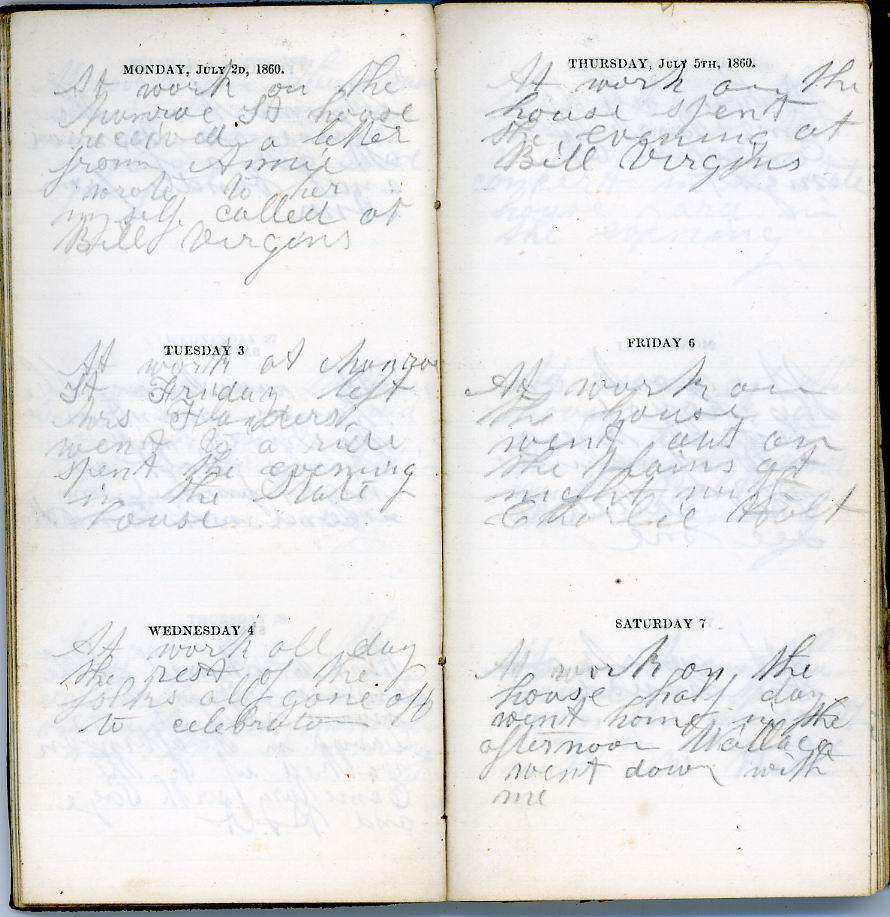 MONDAY, JULY 2D, 1860.
At work on the
Munroe St house
received a letter
from Annie
wrote to her
myself called at
Bill Virgins
TUESDAY 3
At work at Munroe
St Friday left
Mrs Flanders
went to a ride
spent the evening
in the State
house
WEDNESDAY 4
At work all day
the rest of the
folks all gone off
to celebrate
THURSDAY, JULY 5TH, 1860.
At work on the
house spent
the evening at
Bill Virgins
FRIDAY 6
At work on
the house
went out on
the plains at
night with
Charlie Holt
SATURDAY 7
At work on the
house half day
went home in the
afternoon Wallace
went down with
me